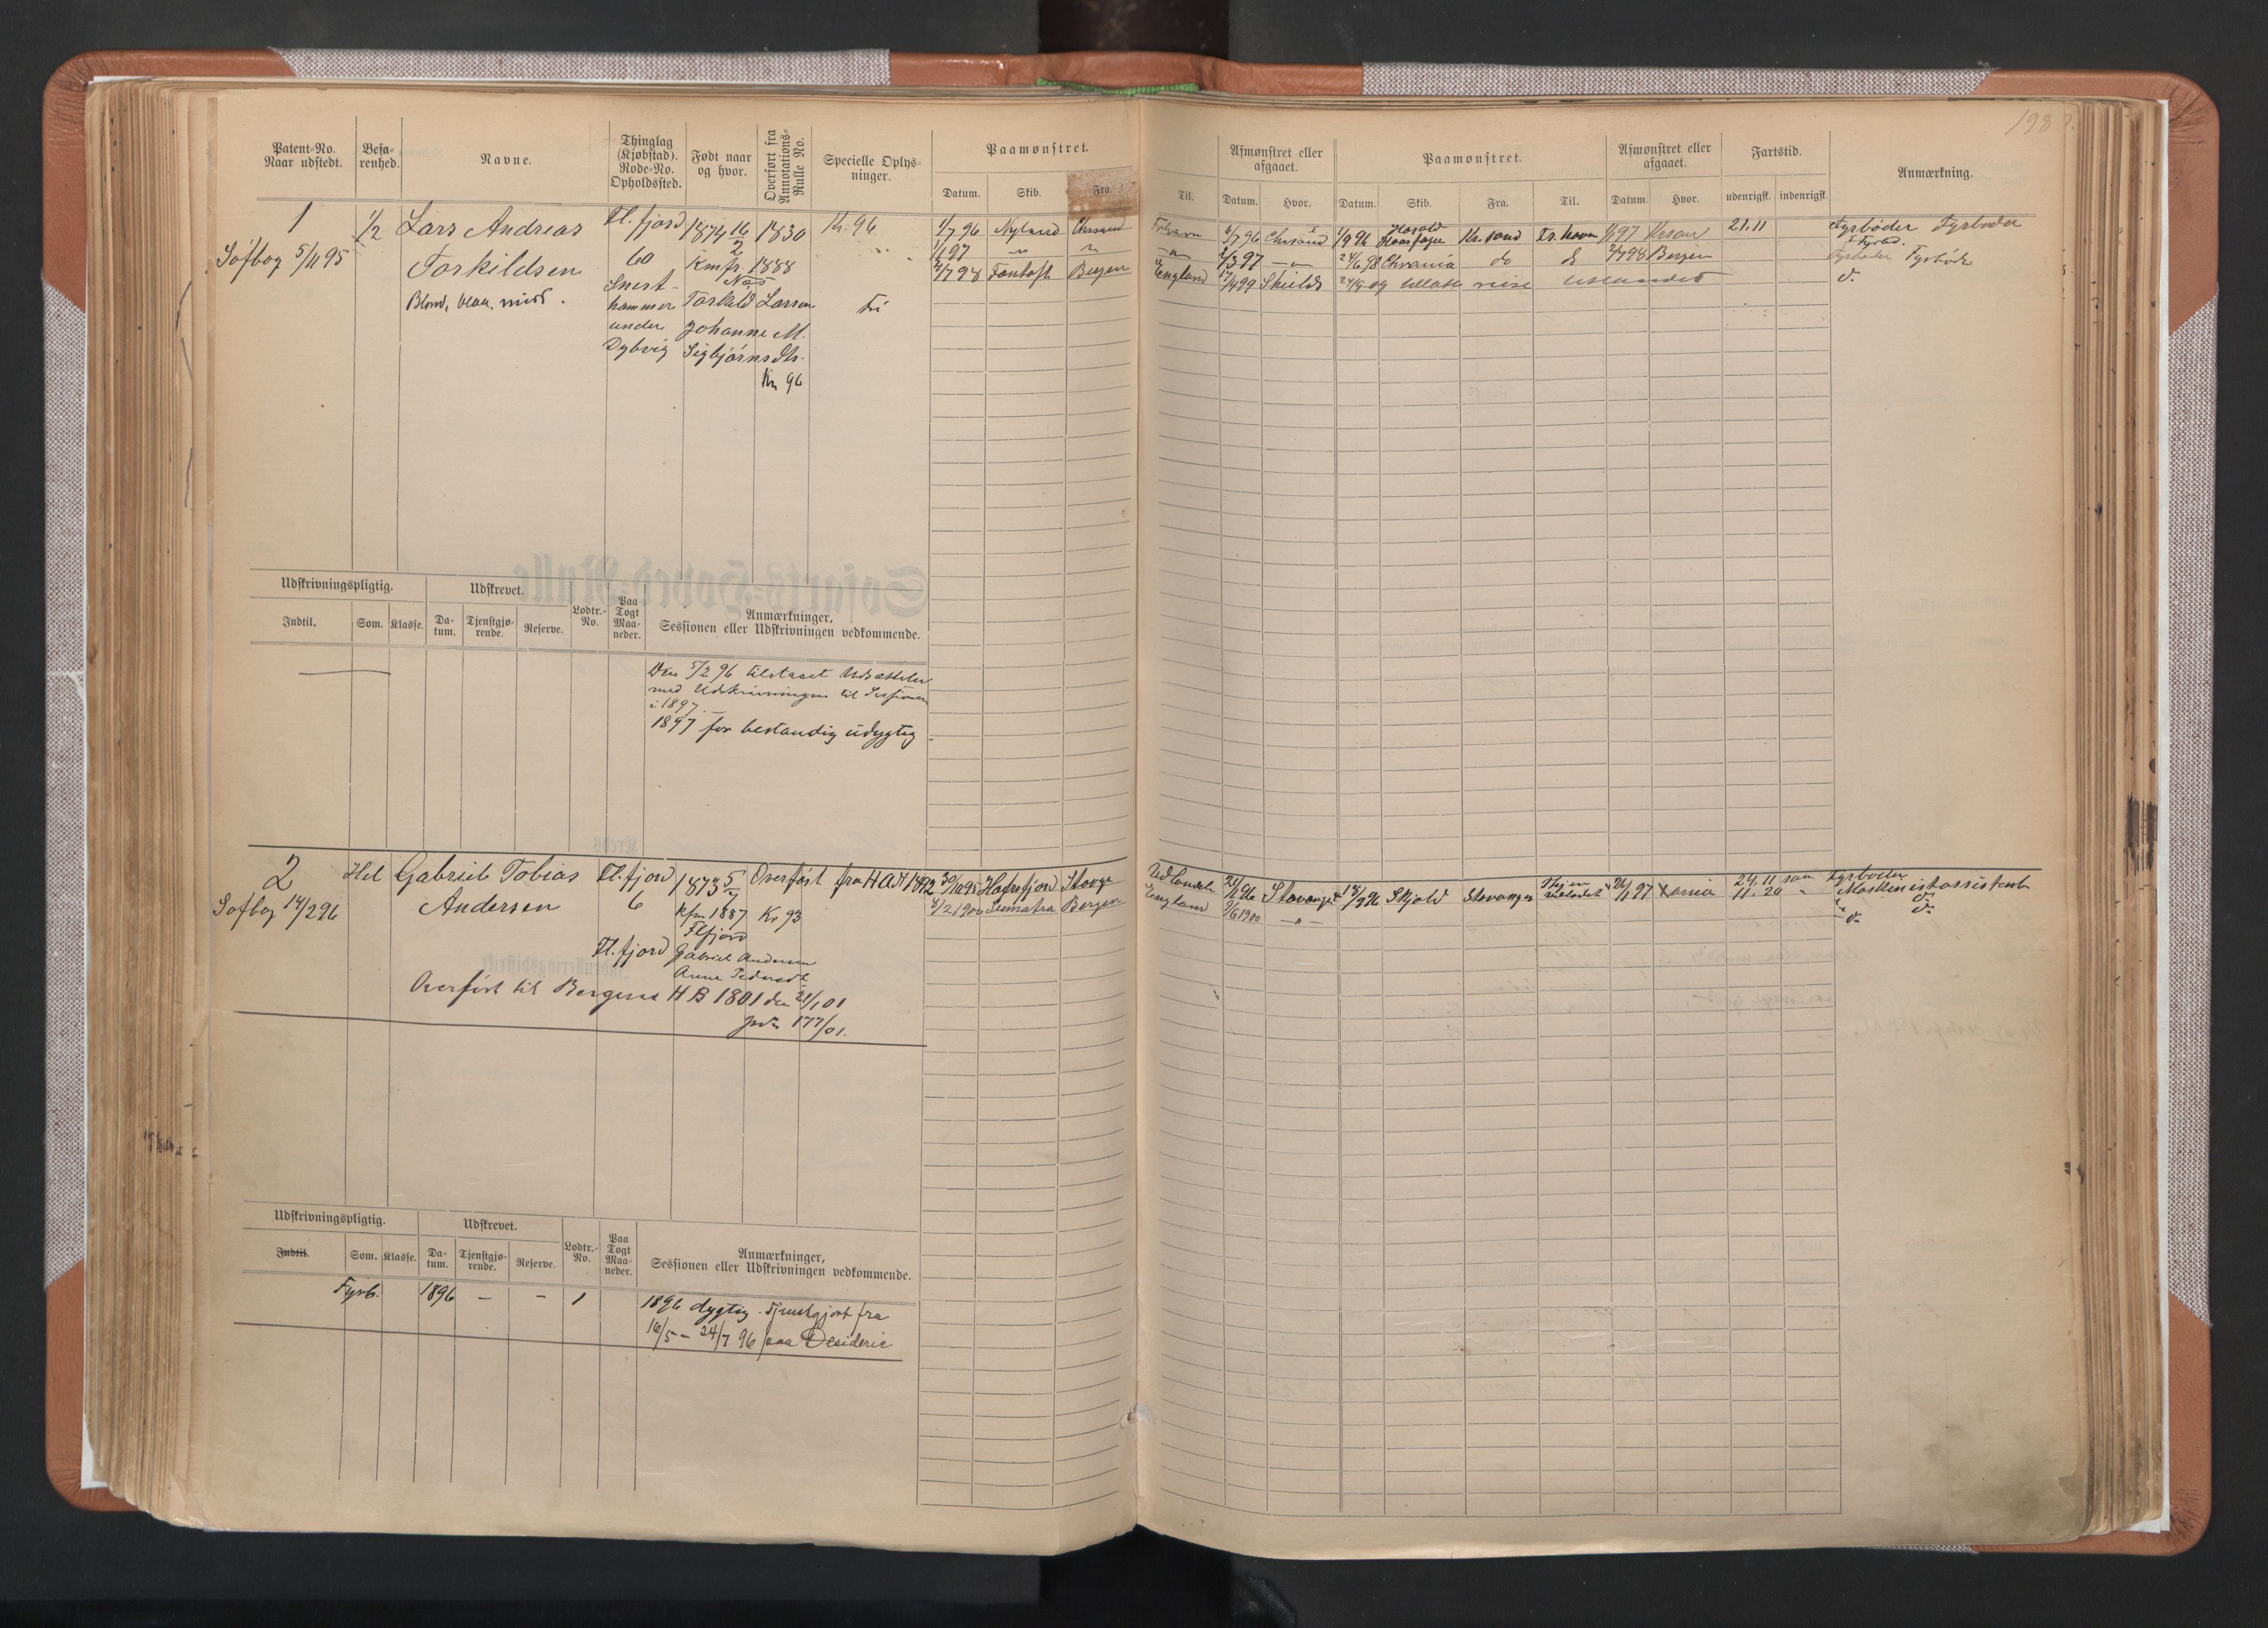 198
Patent-No. Naar udstedt.
Befa-renhed.
Navne.
Thinglag (Kjøbstad). Rode-No. Opholdssted.
Født naar og hvor.
Overført fra Annotations-Rulle No.
Specielle Oplys-ninger.
Paamønstret.
Datum. Skib. Fra. Til.
Afmønstret eller afgaaet.
Datum. Hvor.
Paamønstret.
Datum. Skib. Fra. Til.
Afmønstret eller afgaaet.
Datum. Hvor.
Fartstid.
udenrigsk. indenrigsk.
Anmærkning.
1
Søfbog 5/11 95
1/2
Lars Andreas
Torkildsen
Blond, blaa, mid.
Fl. fjord
60
hammer
under
Dybvig
1874 16/2
Kmfr. 1888
Næs
Torkild Larsen
Johanne M.
Sigbjørnsdtr.
Kr 96
1830
Kr. 96
fri
1/7 96 Nyland Chrsand
1/1 97 " "
2/7 98 Fantoft Bergen England
1/7 96 Chrsand 1/9 96 Harald Haarfager Kr.sand Fr. havn 1/1 97 Krsan 21.11 Fyrbøder Fyrbøder
2/3 97 — " — 24/6 98 Chrania do d Bergen Fyrbøder
17/4 99 Shields reise udlandet d.
Udskrivningspligtig.
Indtil. Som. Klasse.
Udskrevet.
Da-tum. Tjenstgjø-rende. Reserve.
Lodtr.-No.
Paa Togt Maa-neder.
Anmærkninger,
Sessionen eller Udskrivningen vedkommende.
Den 5/2 96 tilstaaet Udsættelse
med Udskrivningen til Sessionen
i 1897.
1897 for bestandig udygtig
2
Søfbog 14/2 96
Hel
Gabriel Tobias
Andersen
Fl. fjord
6
Fl. fjord
1873 5/7
Kfm 1887 Kr 93
Flfjord
Gabriel Andersen
Anne Pedersdt
Overført fra H A N 1812
Overført til Bergens H B 1801 den 21/1 01
jrd. 177/01.
30/10 95 Hafrsfjord Stavgr Udlandet
4/2 1900 Sumatra Bergen England
Stavanger 18/9 96 Skjold Stavanger 26/1 97 Xania 24.11 Fyrbøder
9/6 1900 — " — 11.20 Maskinistassistent
d.
Udskrivningspligtig.
Indtil. Som. Klasse.
Udskrevet.
Da-tum. Tjenstgjø-rende. Reserve.
Lodtr.-No.
Paa Togt Maa-neder.
Anmærkninger,
Sessionen eller Udskrivningen vedkommende.
Fyrb. 1896 — — 1
1896 dygtig. Tjenstgjort fra
16/5 – 24/7 96 paa Desiderie